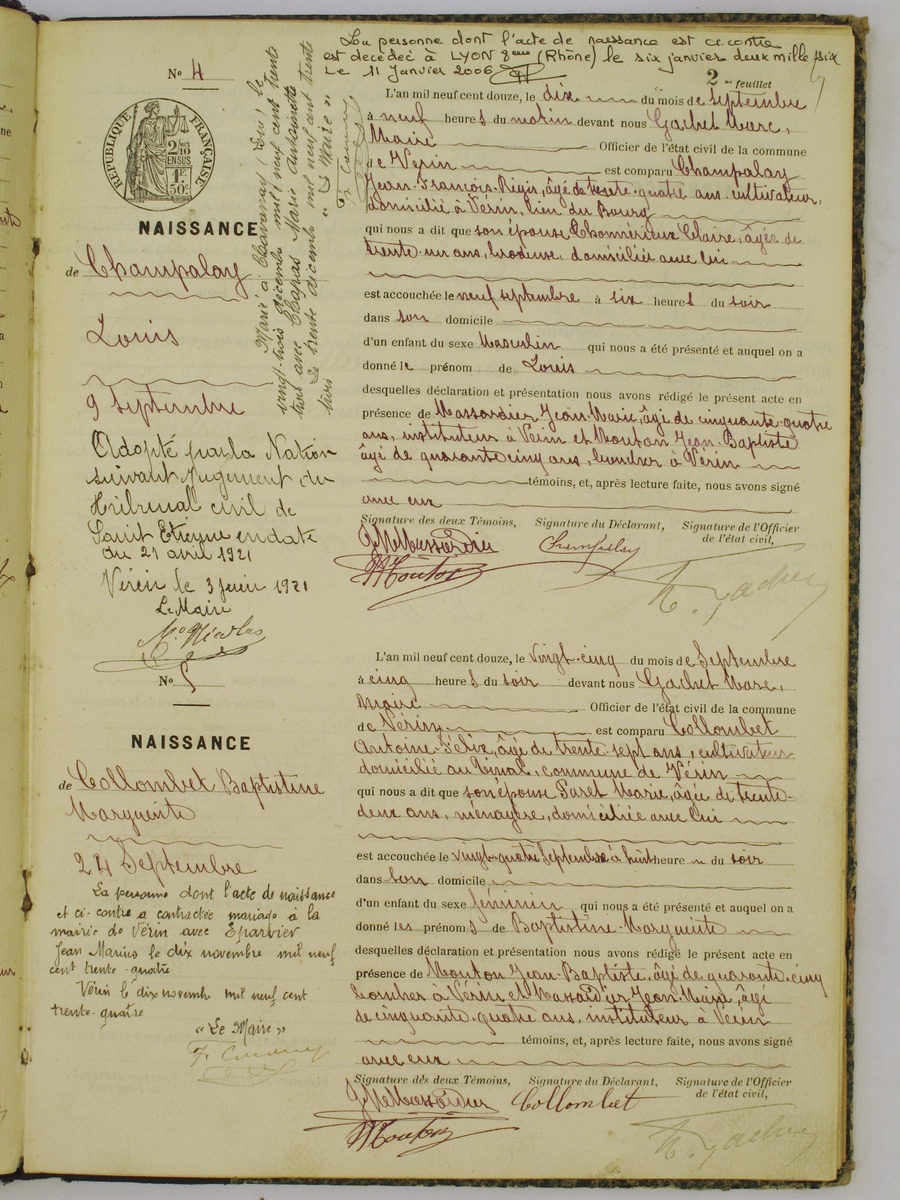 La personne dont l'acte de naissance est ci-contre
est décédé à LYON 8ème (Rhône) le six janvier deux mille six
Le 11 Janvier 2006
2me feuillet
No 4
RÉPUBLIQUE FRANÇAISE
2/10 EN SUS
1F 50c
NAISSANCE
de Champalay
Louis
9 Septembre
Adopté par la Nation
suivant Jugement du
Tribunal civil de
Saint Etienne en date
du 21 avril 1921
Vérin le 3 juin 1921
Le Maire
Marié à Chavanay, le
vingt-trois décembre mil neuf cent trente
trois avec Chapas Marie Antoinette
Le trente décembre mil neuf cent trente
trois « Le Maire »
L'an mil neuf cent douze, le dix du mois de Septembre
à neuf heures du matin devant nous Gachet Marc,
Maire Officier de l'état civil de la commune
de Vérin est comparu Champalay
Jean-François-Régis, âgé de trente-quatre ans, cultivateur,
domicilié à Vérin, lieu du Bourg
qui nous a dit que son épouse Chomérieux Claire, âgée de
trente-un ans, brodeuse, domiciliée avec lui
est accouchée le neuf septembre à six heures du soir
dans son domicile
d'un enfant du sexe Masculin qui nous a été présenté et auquel on a
donné le prénom de Louis
desquelles déclaration et présentation nous avons rédigé le présent acte en
présence de Massardier Jean-Marie, âgé de cinquante-quatre
ans, instituteur à Vérin et Mouton Jean-Baptiste
âgé de quarante cinq ans, à Vérin
témoins, et, après lecture faite, nous avons signé
avec eux
Signature des deux Témoins, Signature du Déclarant, Signature de l'Officier
de l'état civil,
JM Massardier Champalay
Mouton
Gachet
No 5
NAISSANCE
de Collombet Baptistine
Marguerite
24 Septembre
La personne dont l'acte de naissance
et ci-contre a contractée mariage à la
mairie de Vérin avec Eparvier
Jean Marius le dix novembre mil neuf
cent trente-quatre
Vérin le dix novembre mil neuf cent
trente-quatre
« Le Maire »
L'an mil neuf cent douze, le vingt-cinq du mois de Septembre
à cinq heures du soir devant nous Gachet Marc,
Maire Officier de l'état civil de la commune
de Vérin est comparu Collombet
Antoine-Félix, âgé de trente-sept ans, cultivateur
domicilié au commune de Vérin
qui nous a dit que son épouse Paret Marie, âgée de trente-
deux ans, ménagère, domiciliée avec lui
est accouchée le vingt-quatre Septembre à huit heure du soir
dans son domicile
d'un enfant du sexe féminin qui nous a été présenté et auquel on a
donné les prénoms de Baptistine-Marguerite
desquelles déclaration et présentation nous avons rédigé le présent acte en
présence de Mouton Jean-Baptiste, âgé de quarante-cinq
à Vérin et Massardier Jean-Marie, âgé
de cinquante-quatre ans, instituteur à Vérin
témoins, et, après lecture faite, nous avons signé
avec eux
Signature des deux Témoins, Signature du Déclarant, Signature de l'Officier
de l'état civil,
JM Massardier Collombet
Mouton
Gachet